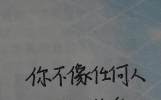 你不像任何人